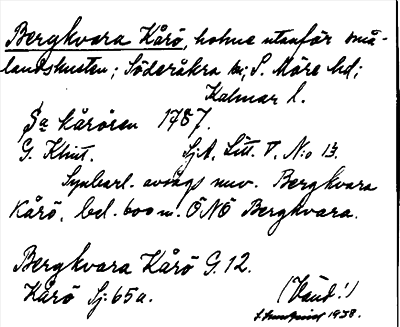 Bergkvara Kårö, holme utanför små-
landskusten; Söderåkra sn; S. Möre hd;
Kalmar l.
Sa Kårören 1787.
G. Klint. SjA, Litt. V, N:o 13.
Synbarl. avsågs nuv. Bergkvara
Kårö, bel. 600 m. ÖNÖ Bergkvara.
Bergkvara Kårö G. 12.
Kårö Sj: 65a.
(Vand!)
1938.